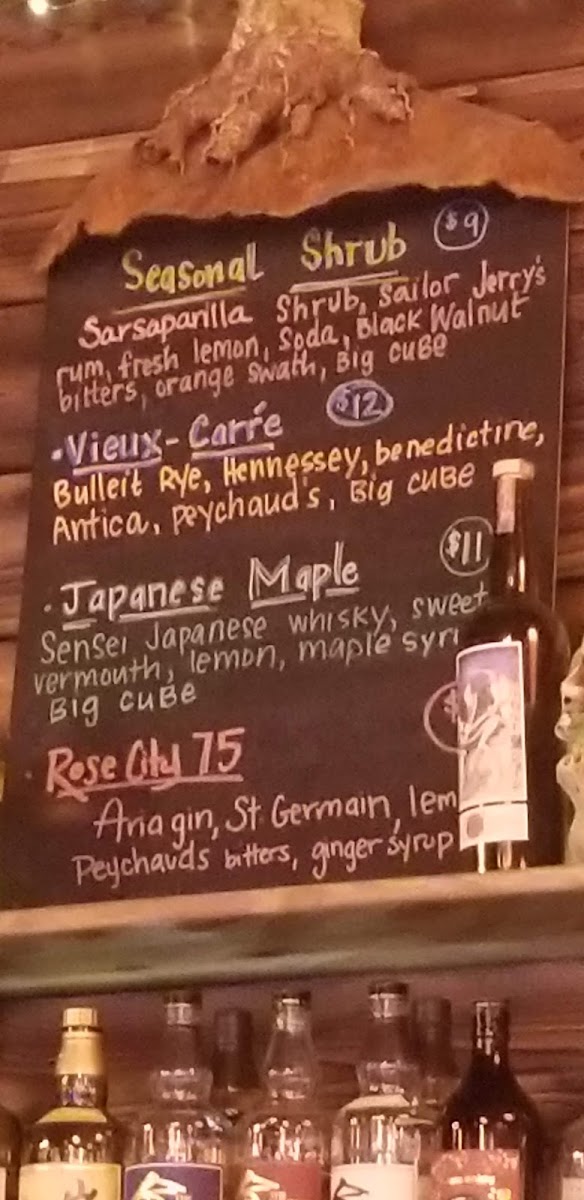 Seasonal Shrub $9
Sarsaparilla Shrub, Sailor Jerry's
rum, fresh lemon, Soda, Black Walnut
bitters, orange swath, Big cube
·Vieux-Carré $12
Bulleit Rye, Hennessey, benedictine,
Antica, peychaud's, Big cube
·Japanese Maple $11
Sensei Japanese whisky, sweet
vermouth, lemon, maple
Big cube
Rose City 75 $
Aria gin, St. Germain,
Peychauds bitters, ginger syrup